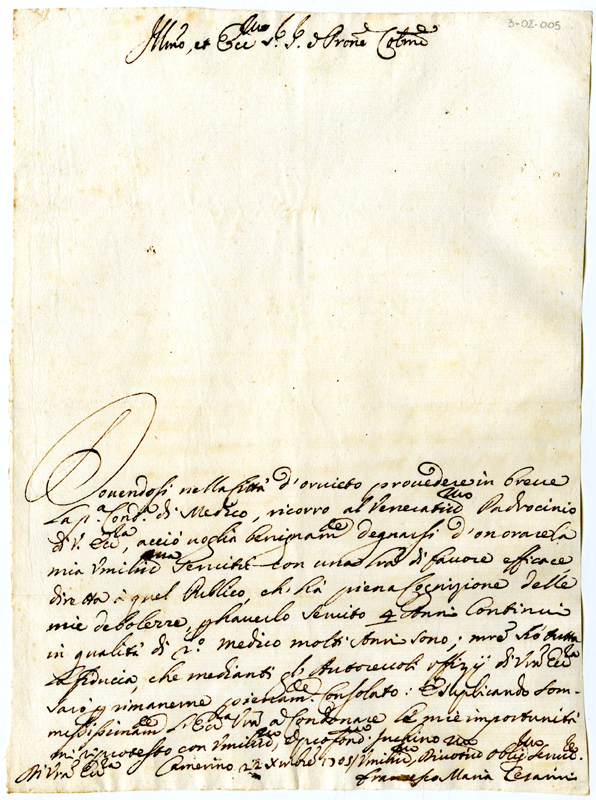 3-02-005
Illmo, et Ecc.mo Sr. Sr. e Prone Colmo
Dovendosi nella Città d'orvieto provedere in breve
la p.a Cond.a di Medico, ricorro al Venerat.mo Padrocinio
di V. Ecc.za, acciò voglia benignam.te degnarsi d'onorare la
mia Umiliss.ma Servitù con una sua di favore efficace
diretta à quel Publico, ch'hà piena Cognizione delle
mie debolezze, p haverlo servito 4 Anni Continui
in qualità di 2.o medico molti Anni sono; mre hò tutta
la fiducia, che medianti gli Autorevoli Uffizij di Vra Ecc.za
sarò p rimanerne pienam.te Consolato: E suplicando som-
messissimam.te l'Ecc.za Vra à Condonare le mie importunità
mi riprotesto con Umiliss.mo, e profond.mo Inchino
Di Vra Ecc.za
Camerino 22 Xmbre 1705 Umiliss.mo, Divotiss.mo Oblig.mo Servit.re
Francesco Maria Cesarini